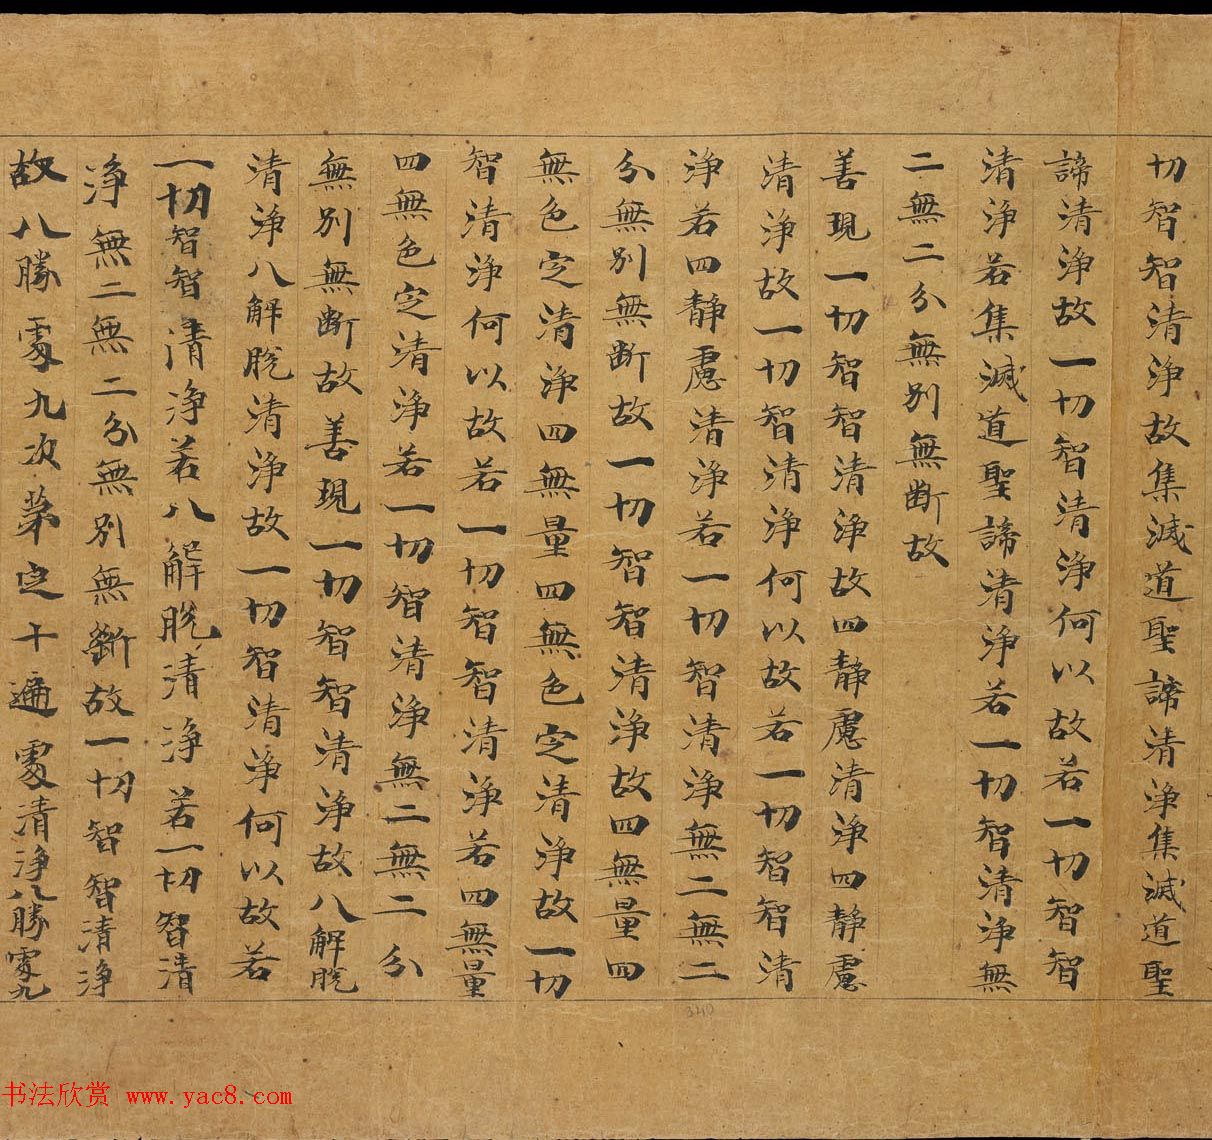 切智智清淨故集滅道聖諦清淨集滅道聖
諦清淨故一切智清淨何以故若一切智智
清淨若集滅道聖諦清淨若一切智清淨無
二無二分無別無斷故
善現一切智智清淨故四靜慮清淨四靜慮
清淨故一切智清淨何以故若一切智智清
淨若四靜慮清淨若一切智清淨無二無二
分無別無斷故一切智智清淨故四無量四
無色定清淨四無量四無色定清淨故一切
智清淨何以故若一切智智清淨若四無量
四無色定清淨若一切智清淨無二無二分
無別無斷故善現一切智智清淨故八解脫
清淨八解脫清淨故一切智清淨何以故若
一切智智清淨若八解脫清淨若一切智清
淨無二無二分無別無斷故一切智智清淨
故八勝處九次第定十遍處清淨八勝處九
340
书法欣赏 www.yac8.com